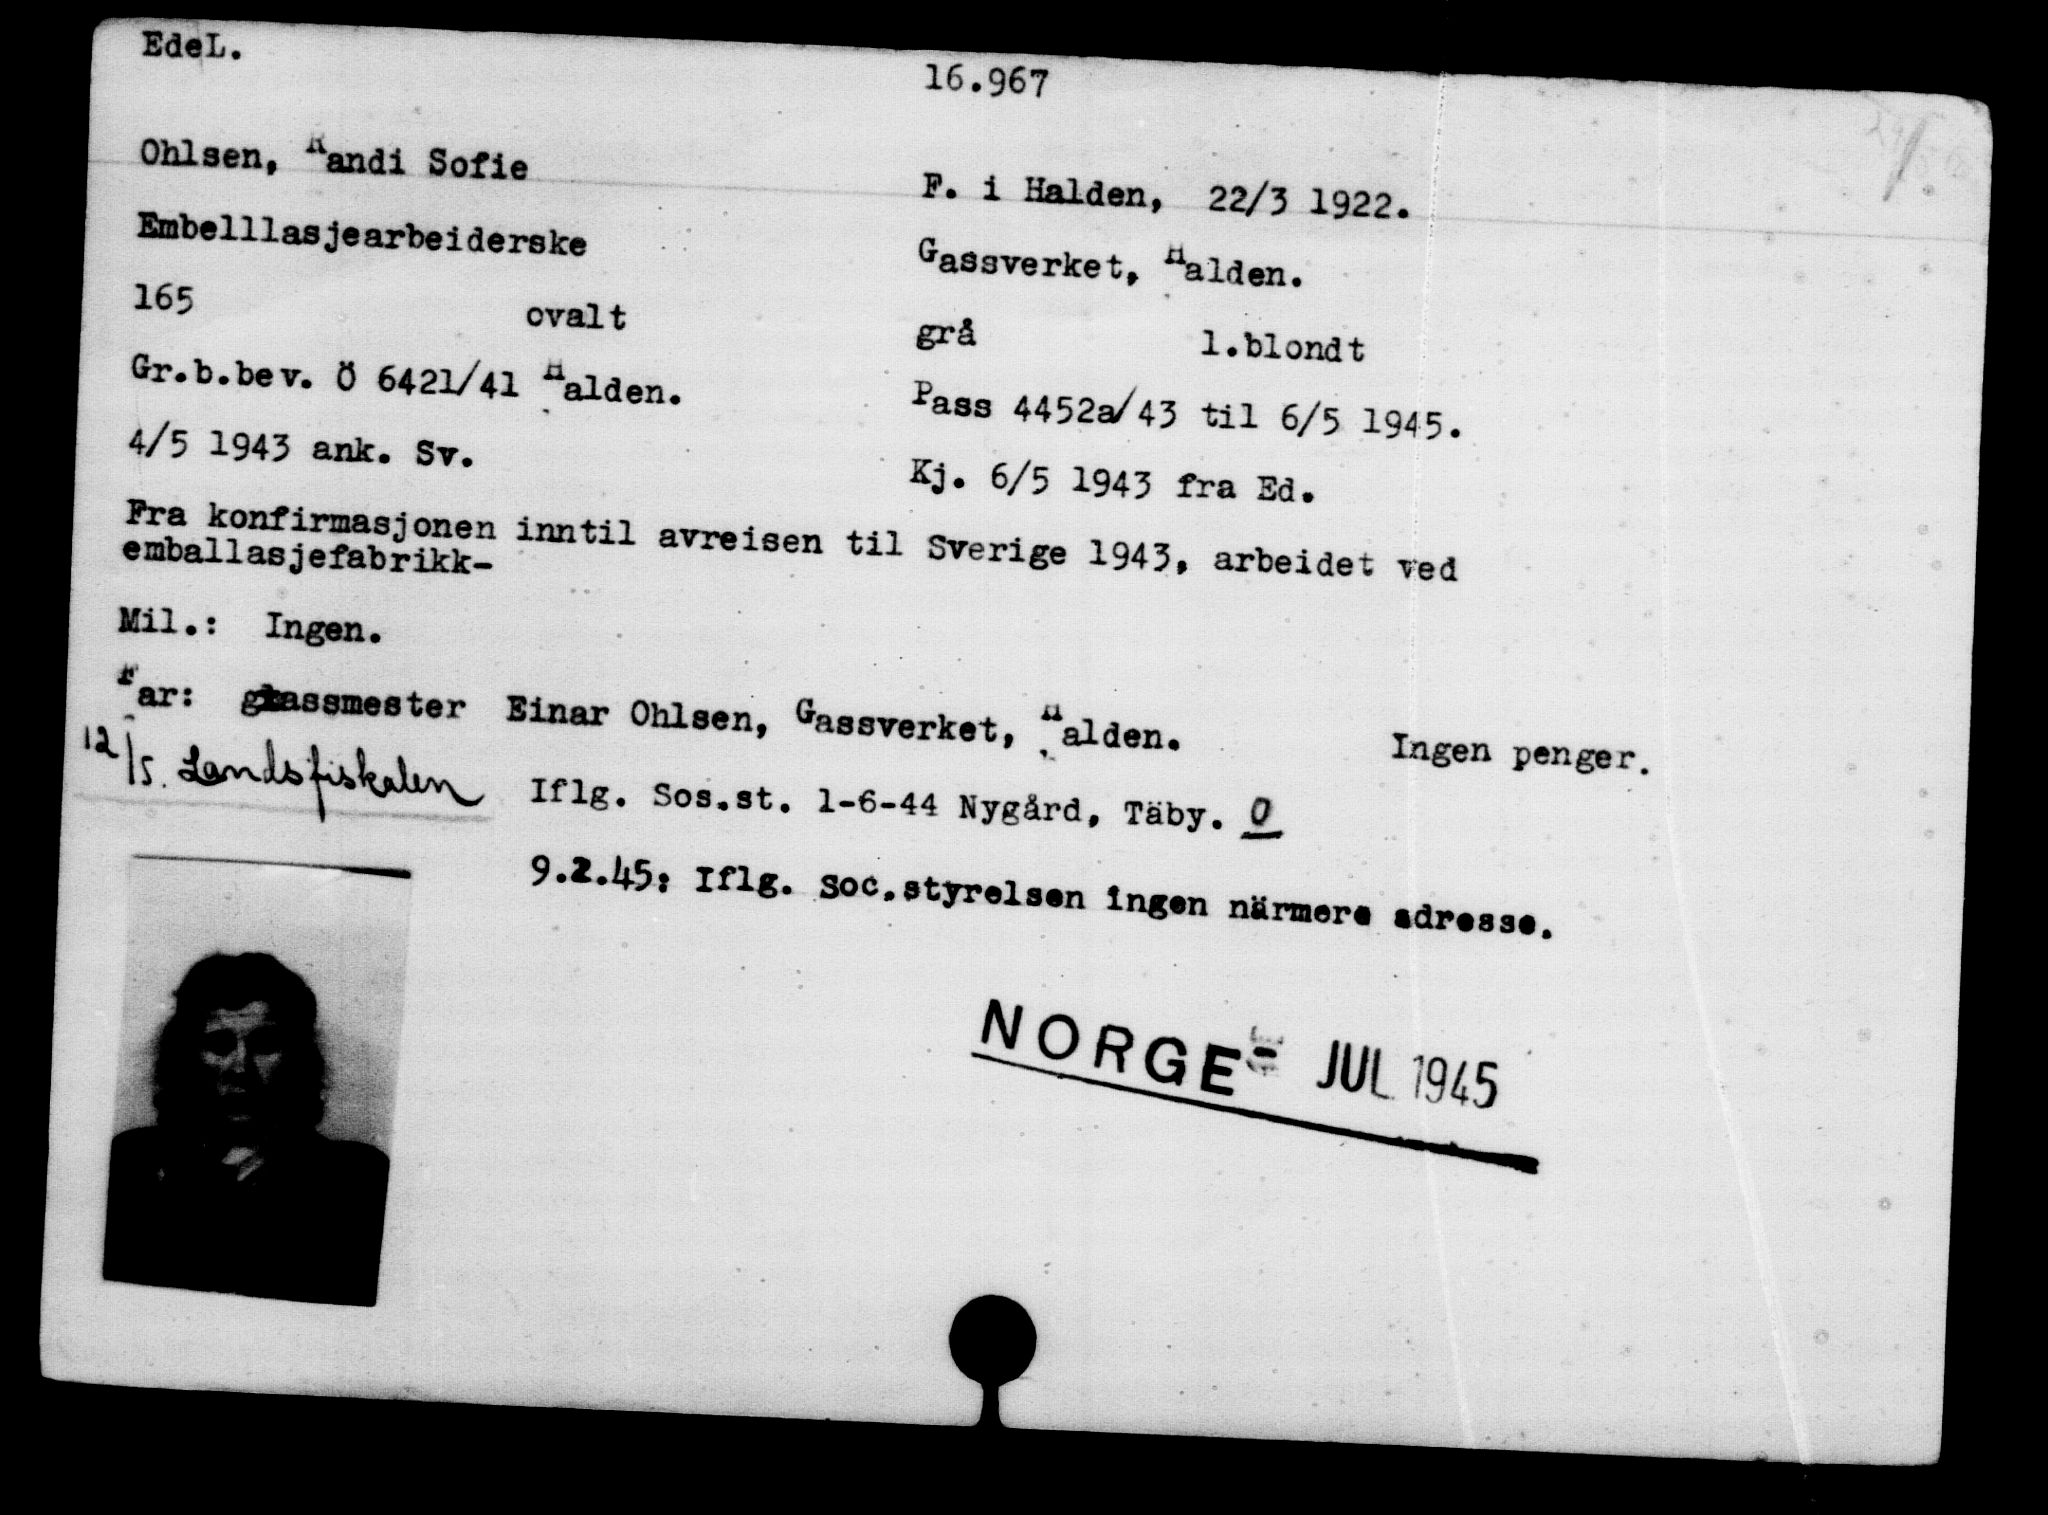 EdeL.
16.967
Ohlsen, Randi Sofie
F. i Halden, 22/3 1922.
Embelllasjearbeiderske
Gassverket, Halden.
165 ovalt
grå l.blondt
Gr.b.bev. Ö 6421/41 Halden.
Pass 4452a/43 til 6/5 1945.
4/5 1943 ank. Sv.
Kj. 6/5 1943 fra Ed.
Fra konfirmasjonen inntil avreisen til Sverige 1943, arbeidet ved
emballasjefabrikk-
Mil.: Ingen.
Far: gassmester Einar Ohlsen, Gassverket, Halden. Ingen penger.
12/5. Landsfiskalen
Iflg. Sos.st. 1-6-44 Nygård, Täby. O
9.2.45: Iflg. Soc.styrelsen ingen närmere adresse.
NORGE JUL 1945